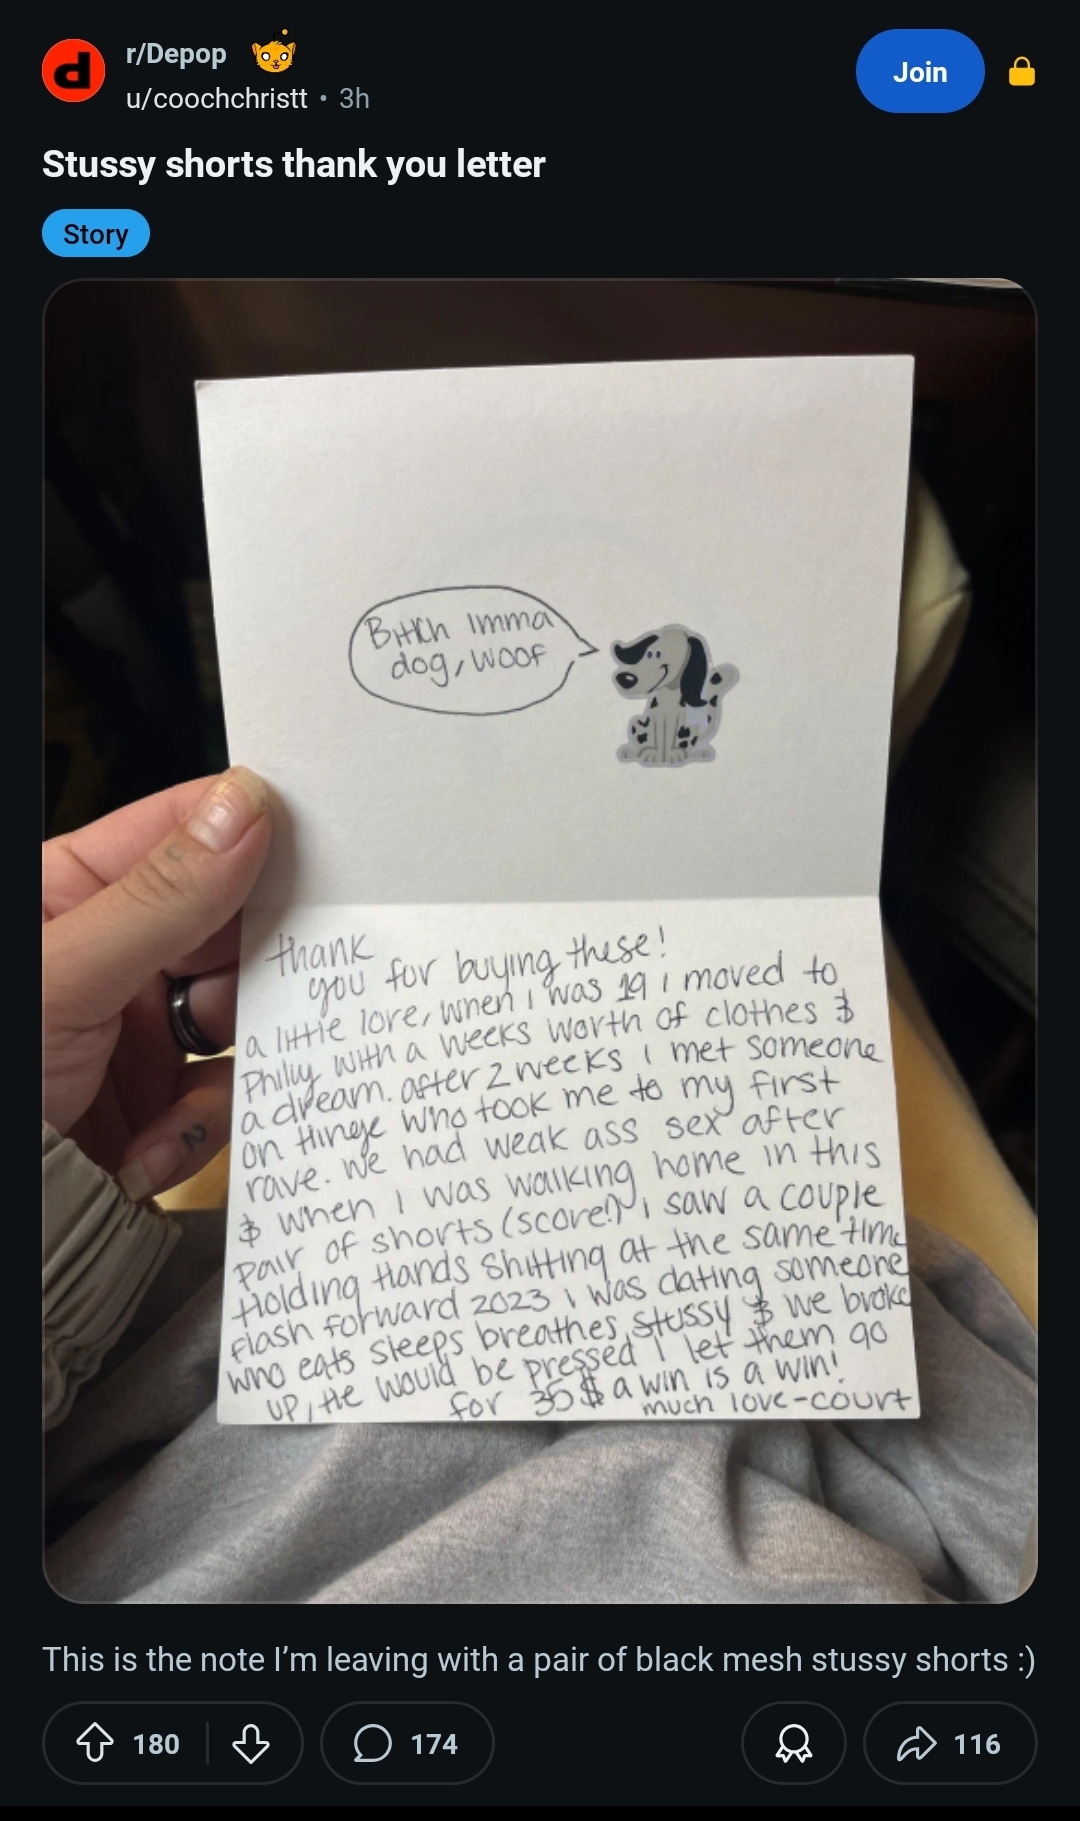 r/Depop
u/coochchristt • 3h
Join
Stussy shorts thank you letter
Story
Bitch Imma
dog, woof
thank
you for buying these!
a little lore, when i was 19 i moved to
Philly with a weeks worth of clothes &
a dream. after 2 weeks i met someone
on Hinge who took me to my first
rave. we had weak ass sex after
& when i was walking home in this
pair of shorts (score!) i saw a couple
Holding Hands shitting at the same time
flash forward 2023 i was dating someone
who eats sleeps breathes stussy & we broke
up, He would be pressed i let them go
for 35$ a win is a win!
much love-court
This is the note I’m leaving with a pair of black mesh stussy shorts :)
180
174
116